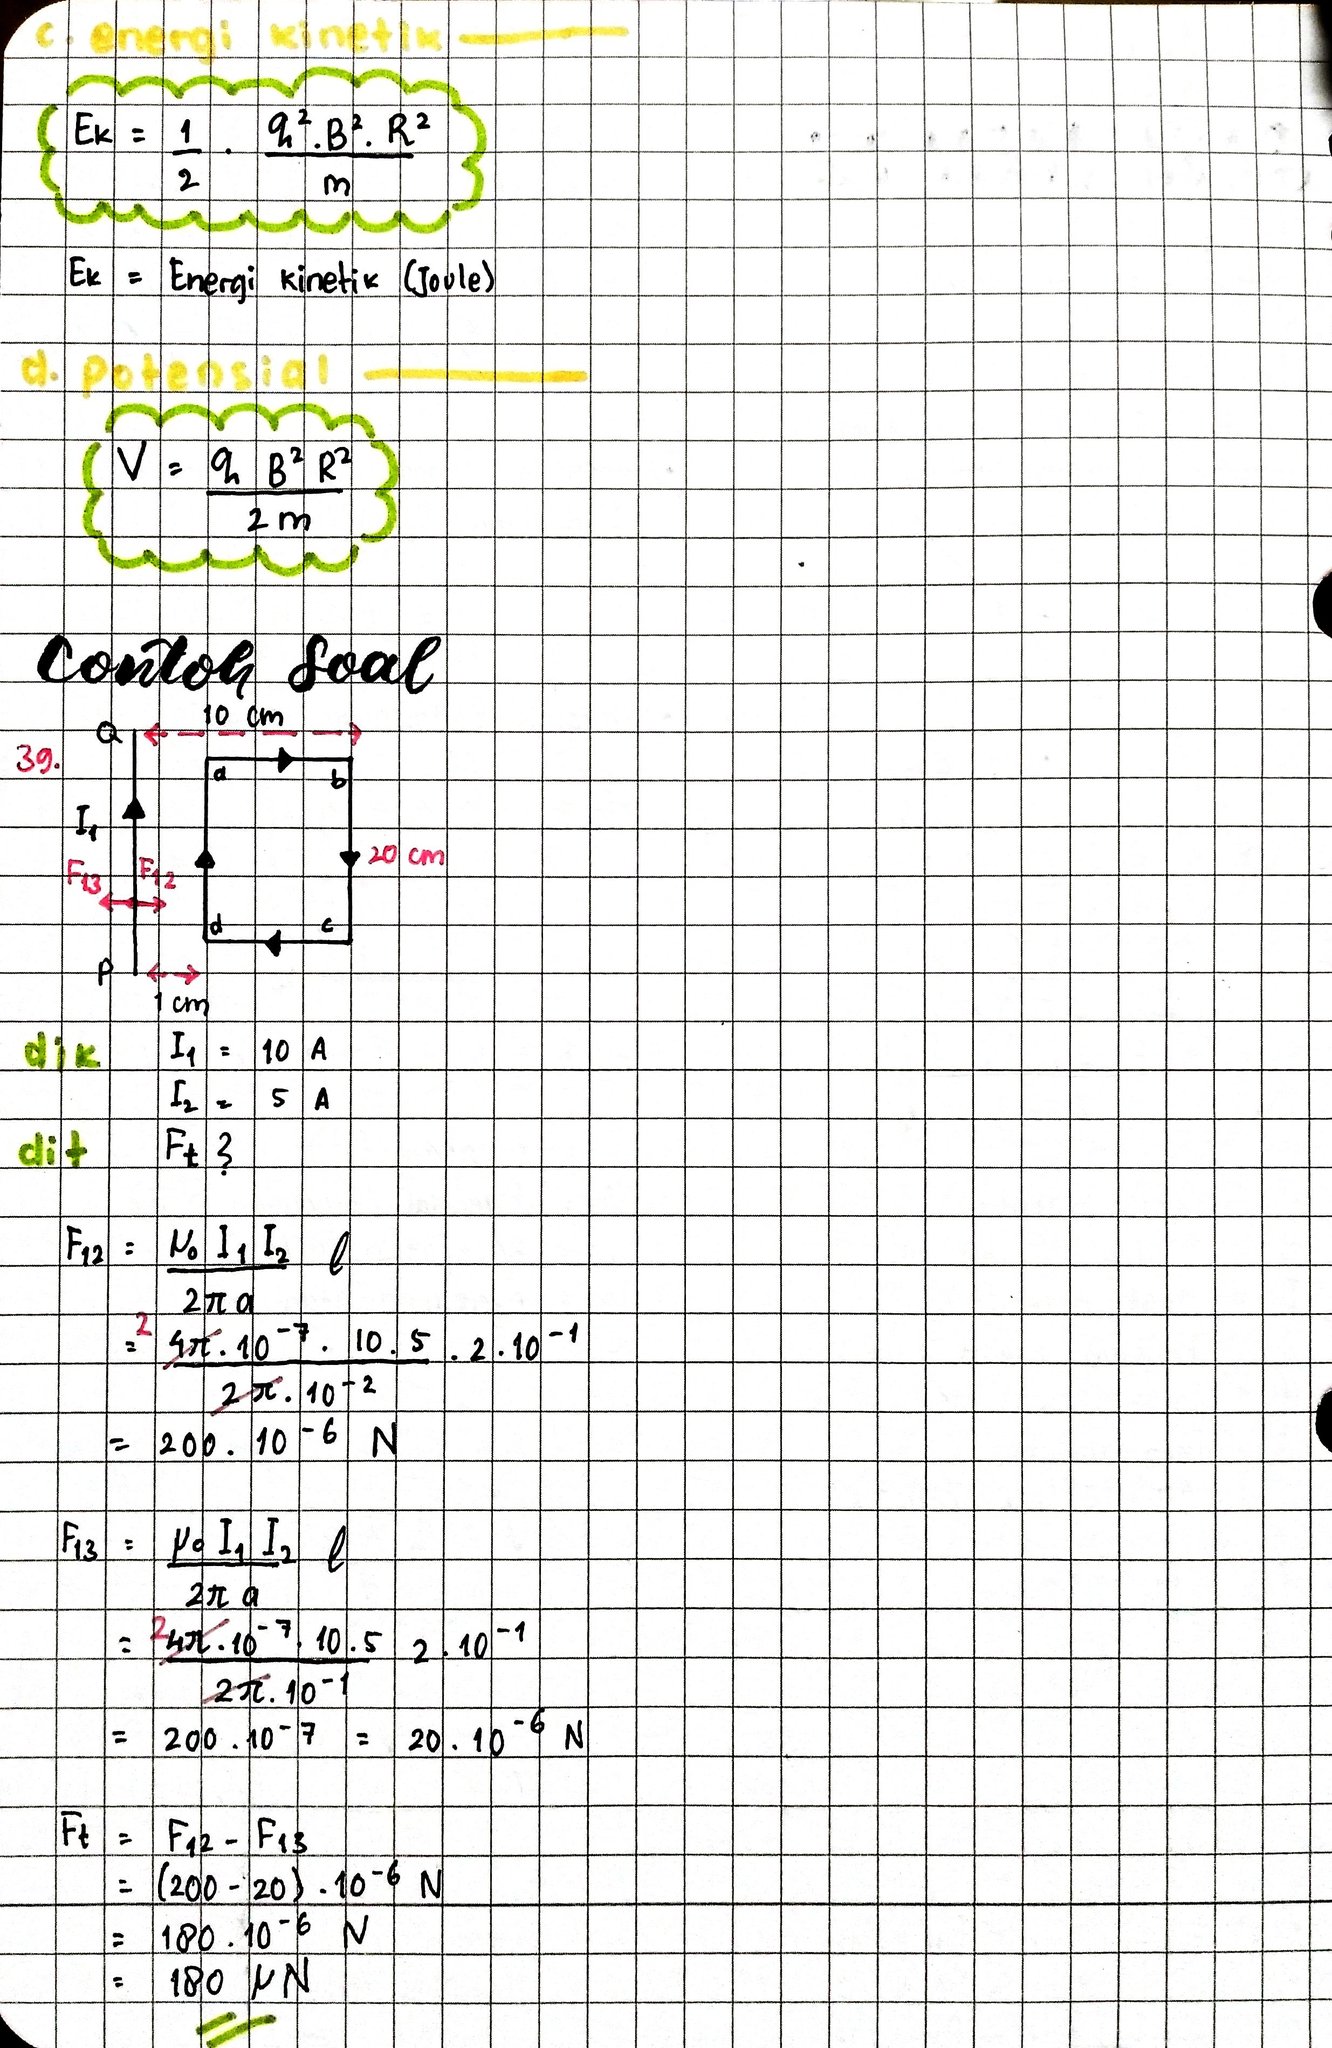 c. energi kinetik
Ek = 1/2 . q² . B² . R² / m
Ek = Energi kinetik (Joule)
d. potensial
V = q B² R² / 2 m
Contoh Soal
10 cm
Q
39.
a
b
I₁
20 cm
F₁₃
F₁₂
d
c
P
1 cm
dik I₁ = 10 A
I₂ = 5 A
dit Ft ?
F₁₂ = μ₀ I₁ I₂ / 2π a ℓ
= 2 4π . 10⁻⁷ . 10 . 5 / 2π . 10⁻² . 2 . 10⁻¹
= 200 . 10⁻⁶ N
F₁₃ = μ₀ I₁ I₂ / 2π a ℓ
= 2 4π . 10⁻⁷ . 10 . 5 / 2π . 10⁻¹ 2 . 10⁻¹
= 200 . 10⁻⁷ = 20 . 10⁻⁶ N
Ft = F₁₂ - F₁₃
= (200 - 20) . 10⁻⁶ N
= 180 . 10⁻⁶ N
= 180 μN